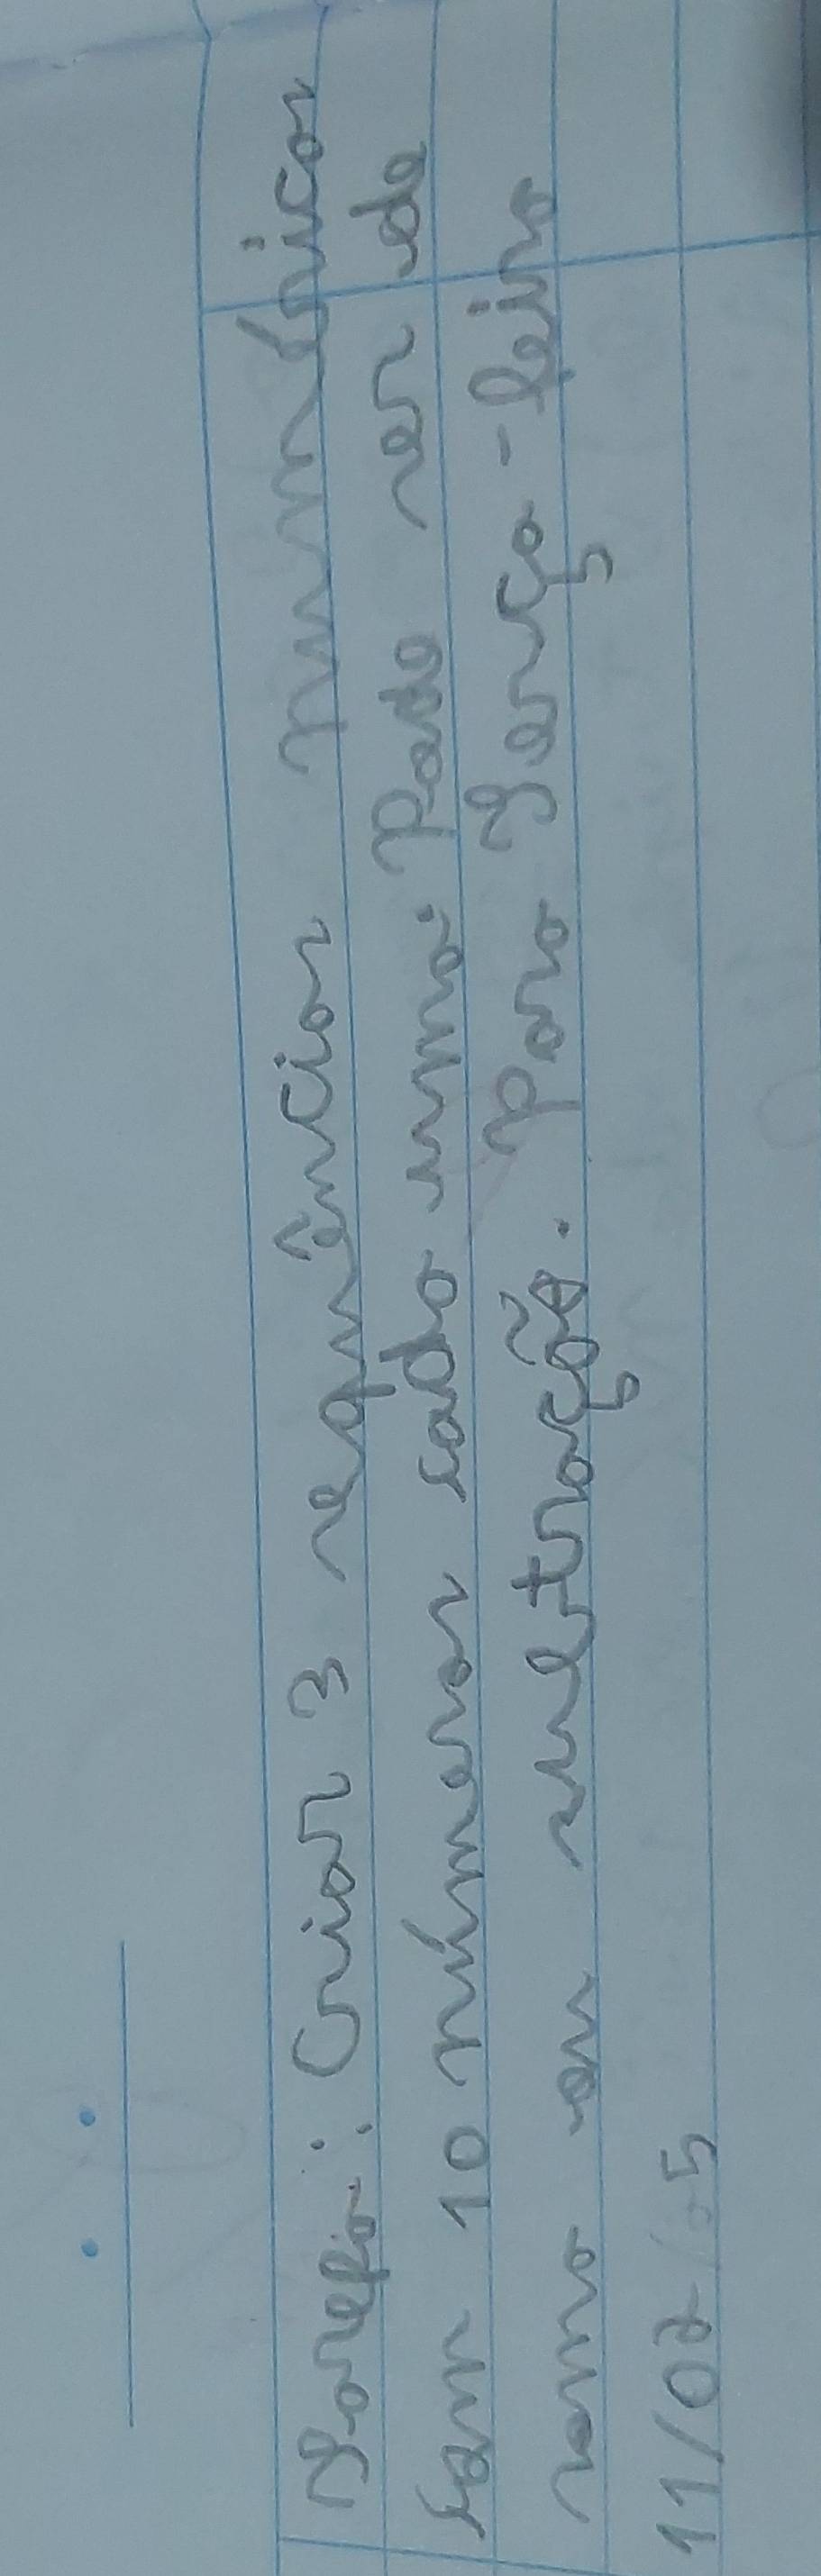 Tarefa: Criar 3 sequências numéricas
com 10 números cada uma. Pode ser de
soma ou subtração. Para Terça-feira
11/02/05